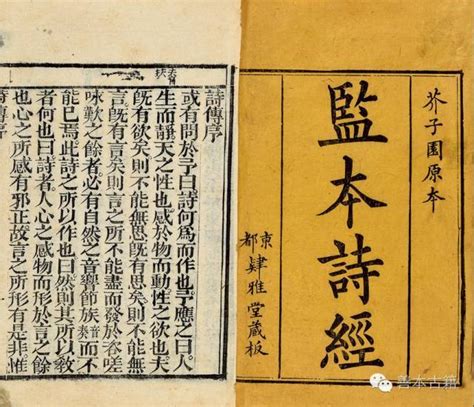 芥子園原本
監本詩經
京都肄雅堂藏板
詩傳序
或有問於予曰詩何爲而作也予應之曰人
生而靜天之性也感於物而動性之欲也夫
既有欲矣則不能無思既有思矣則不能無
言既有言矣則言之所不能盡而發於咨嗟
咏歎之餘者必有自然之音響節族而不
能已焉此詩之所以作也曰然則其所以教
者何也曰詩者人心之感物而形於言之餘
也心之所感有邪正故言之所形有是非惟
詩傳序
善本古籍